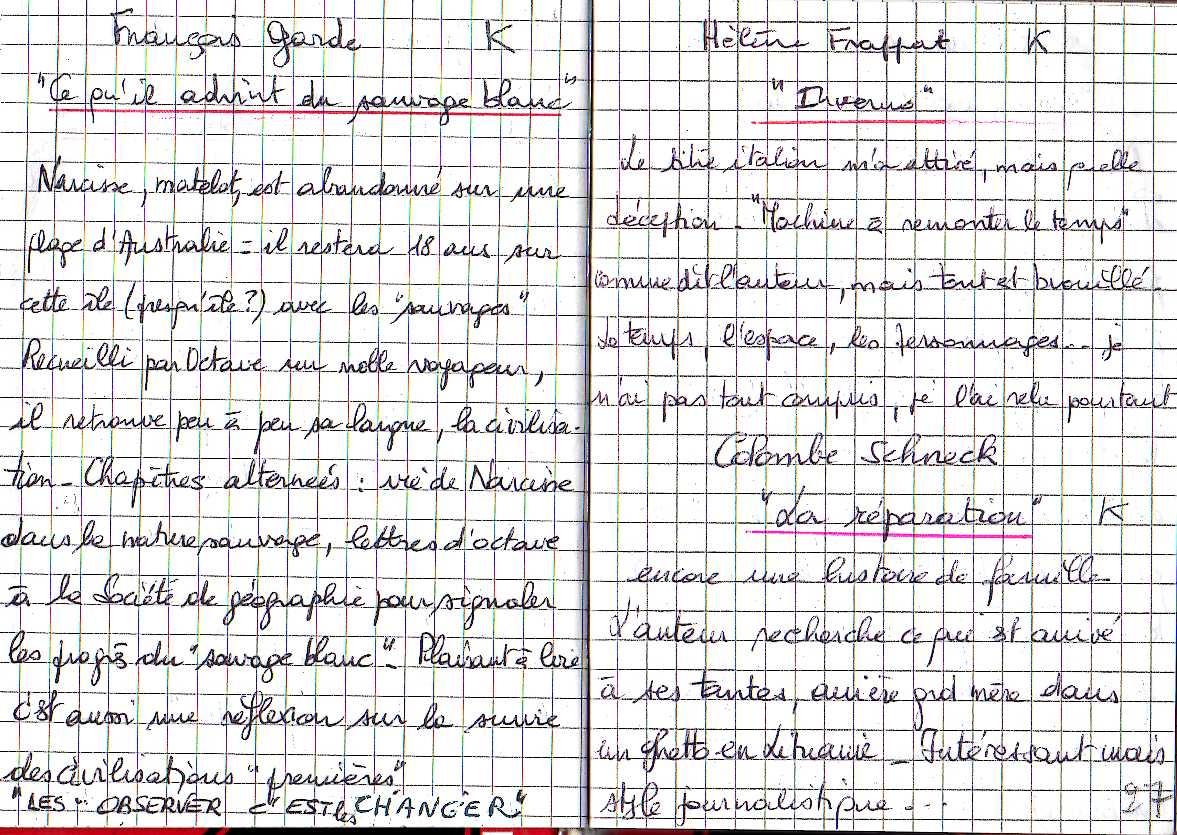 François Garde K
"Ce qu'il advint du sauvage blanc"
Narcisse, matelot, est abandonné sur une
plage d'Australie = il restera 18 ans sur
cette île (presqu'île?) avec les "sauvages"
Recueilli par Octave un noble voyageur,
il retrouve peu à peu sa langue, la civilisa-
tion - Chapitres alternés : vie de Narcisse
dans la nature sauvage, lettres d'octave
à la Société de géographie pour signaler
les progrès du "sauvage blanc" - Plaisant à lire
c'est aussi une réflexion sur la survie
des civilisations "premières"
"LES OBSERVER C'EST les CHANGER"
Hélène Frappat K
"Inverno"
Le titre italien m'a attiré, mais quelle
déception - "Machine à remonter le temps"
comme dit l'auteur, mais tout est brouillé -
Le temps, l'espace, les personnages... je
n'ai pas tout compris, je l'ai relu pourtant
Colombe Schneck
"La réparation" K
encore une histoire de famille -
L'auteur recherche ce qui est arrivé
à ses tantes, arrière grd mère dans
un ghetto en Lituanie - Intéressant mais
style journalistique...
27